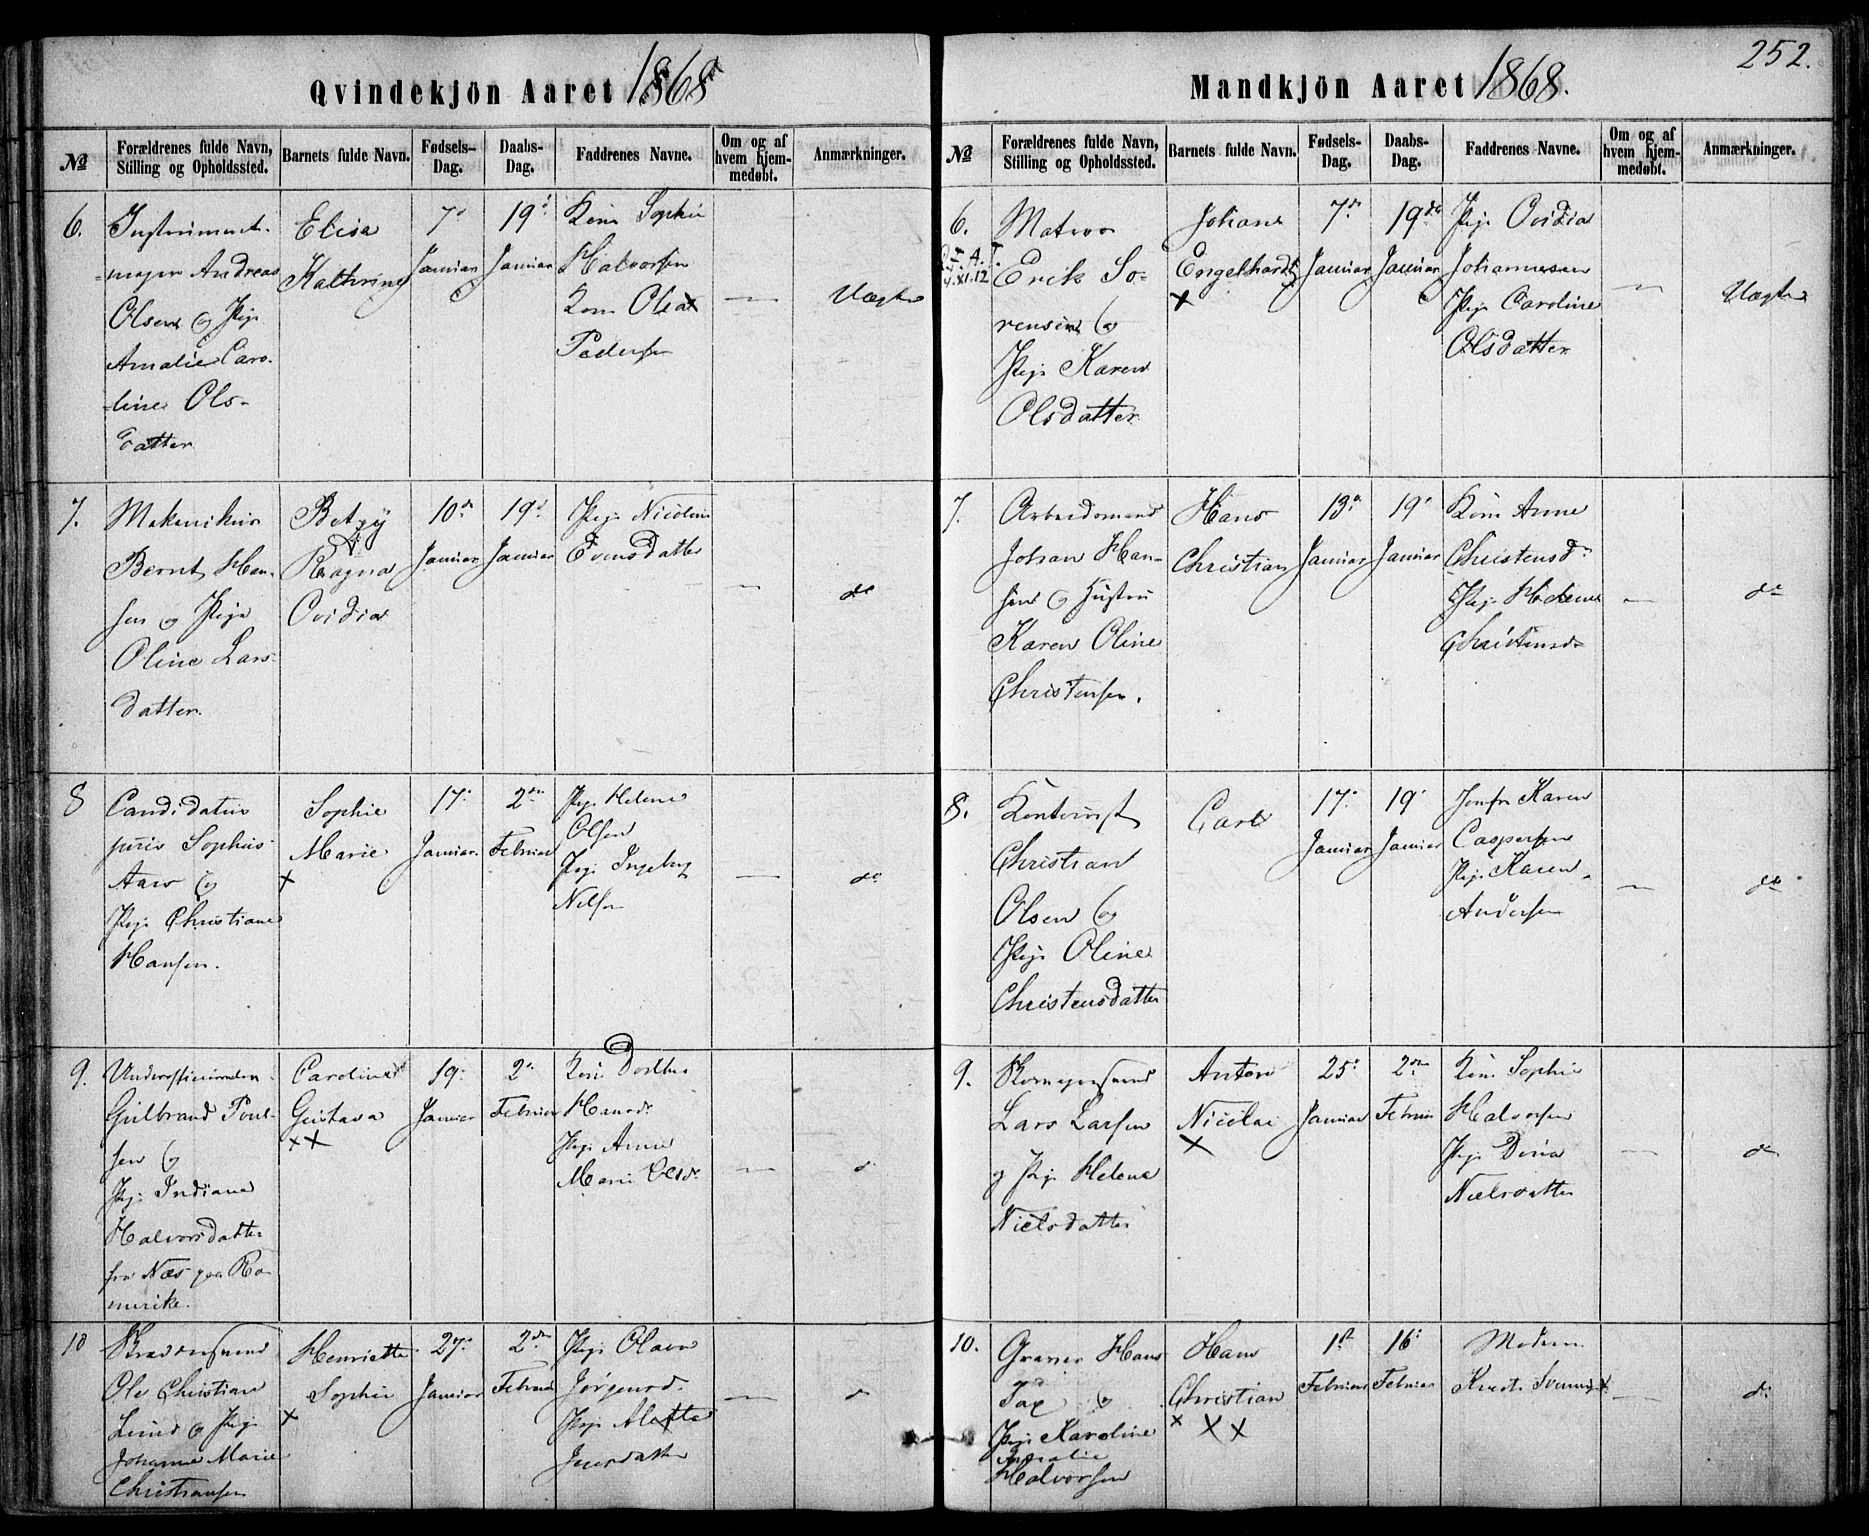 Qvindekjön Aaret 1868
№
Forældrenes fulde Navn,
Stilling og Opholdssted.
Barnets fulde Navn.
Fødsels-
Dag.
Daabs-
Dag.
Faddrenes Navne.
Om og af
hvem hjem-
medøbt.
Anmærkninger.
6.
Instrument-
mager Andreas
Olsen og Pige
Amalie Caro-
line Ols-
datter
Elisa
Kathrine
7
Januar
19
Januar
Kone Sophie
Halvorsen
Kone Olea
Pedersen
—
Uægte
7.
Mekanikus
Bernt Han-
sen og Pige
Oline Lars-
datter.
Betzy
Ragna
Ovidia
10de
Januar
19
Januar
Pige Nicoline
Evensdatter
—
do
8
Candidatus
juris Sophus
Aars og
Pige Christiane
Hansen.
Sophie
Marie
x
17
Januar.
2den
Februar
Pige Helene
Olsen
Pige Ingeborg
Nilsen
—
do
9.
Gulbrand Poul-
sen og
Pige Indiane
Halvorsdatter
fra Næs paa Ro-
merike.
Caroline
Gustava
x x
19
Januar
2
Februar
Kone Dorthea
Hansd.
Pige Anne
Marie Olsd.
—
d
10
Skræddersvend
Ole Christian
Lund og Pige
Johanne Marie
Christiansen
Henriette
Sophie
x
27
Januar
2den
Februar
Pige Olava
Jørgensd.
Pige Alette
Jensdatter
—
d
252.
Mandkjön Aaret 1868.
№
Forældrenes fulde Navn,
Stilling og Opholdssted.
Barnets fulde Navn.
Fødsels-
Dag.
Daabs-
Dag.
Faddrenes Navne.
Om og af
hvem hjem-
medøbt.
Anmærkninger.
6.
Matros
Erik Sö-
rensen og
Pige Karen
Olsdatter
Johan
Engelhardt
x
7de
Januar
19de
Januar
Pige Ovidia
Johannesen
Pige Caroline
Olsdatter
—
Uægte
7.
Arbeidsmand
Johan Han-
sen og Hustru
Karen Oline
Christensen.
Hans
Christian
13
Januar
19
Januar
Kone Anne
Christensd.
Pige Helene
Christensd.
—
do
8.
Kontorist
Christian
Olsen og
Pige Oline
Christensdatter
Carl
17
Januar
19
Januar
Jomfr Karen
Caspersen
Pige Karen
Andersen
—
do
9.
Skomagersvend
Lars Larsen
og Pige Helene
Nielsdatter
Anton
Nicolai
x
25
Januar
2den
Februar
Kone Sophie
Halvorsen
Pige Dina
Nielsdatter
—
do
10.
Graver Hans
Sax og
Pige Karoline
Amalie
Halvorsen
Hans
Christian
x x x
1ste
Februar
16
Februar
Moderen
—
d